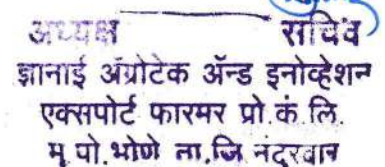 अध्यक्ष सचिव
ज्ञानाई ॲग्रोटेक ॲन्ड इनोव्हेशन
एक्सपोर्ट फारमर प्रो.कं.लि.
मु.पो.भोणे ता.जि.नंदुरबार